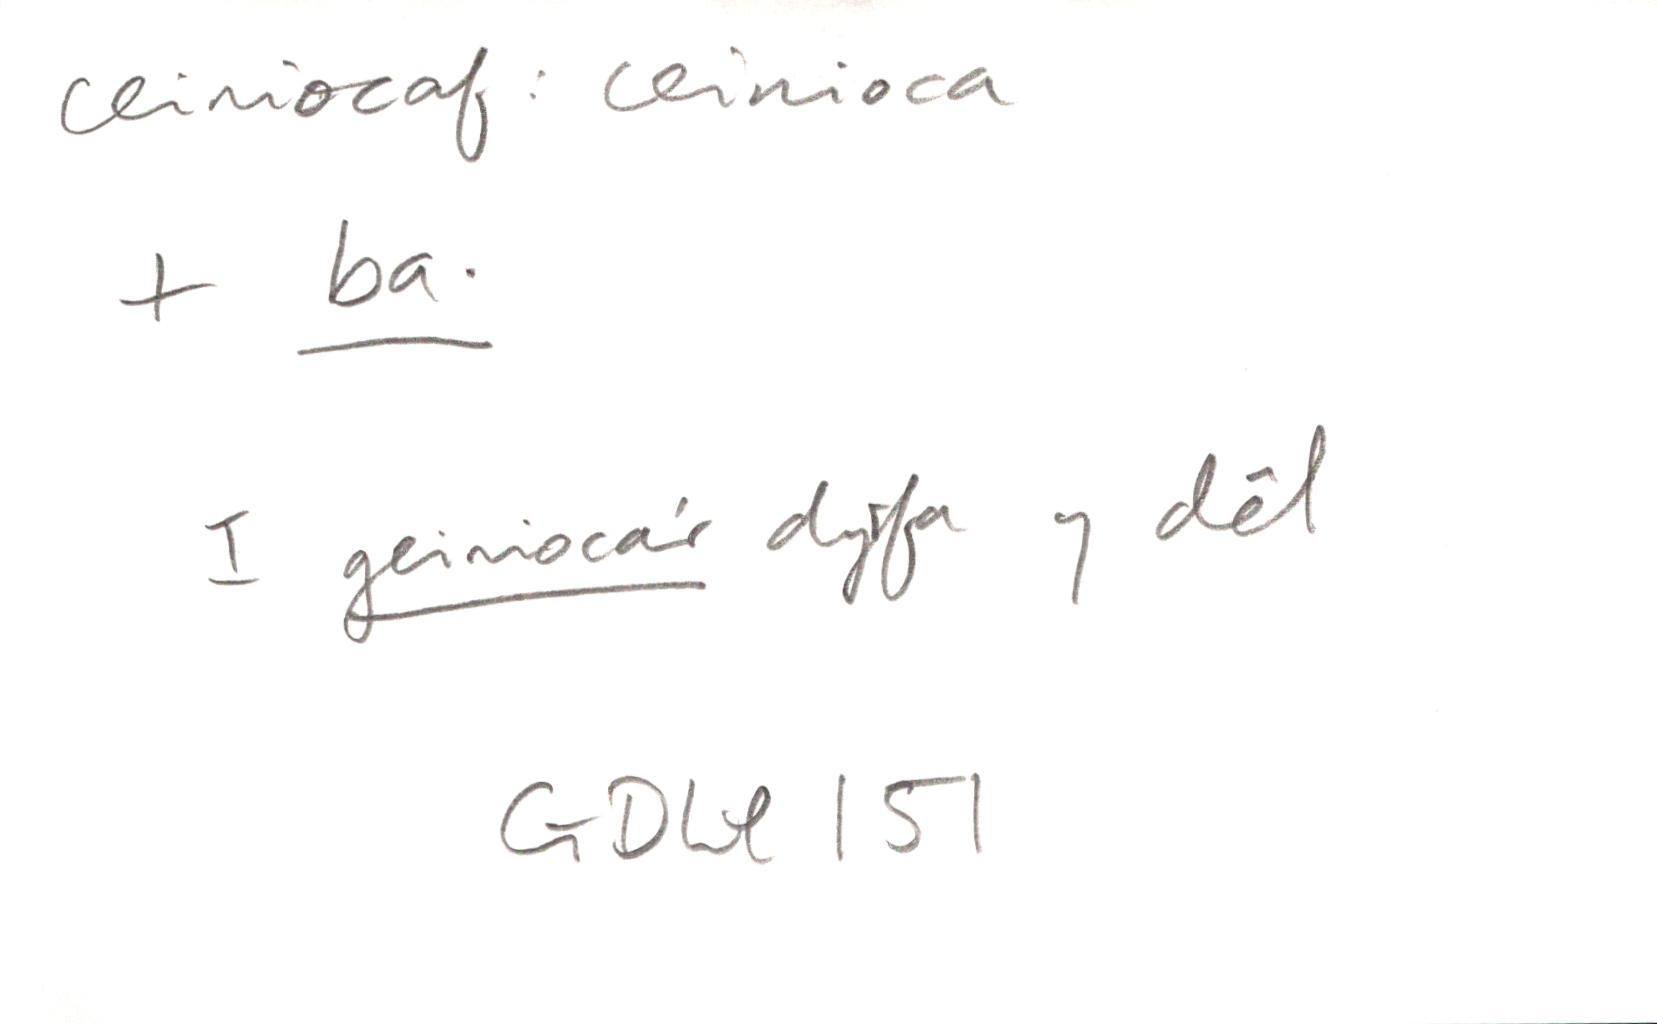 ceiniocaf : ceinioca
+ ba.
I geinioca'r dyrfa y dêl
GDLl 151